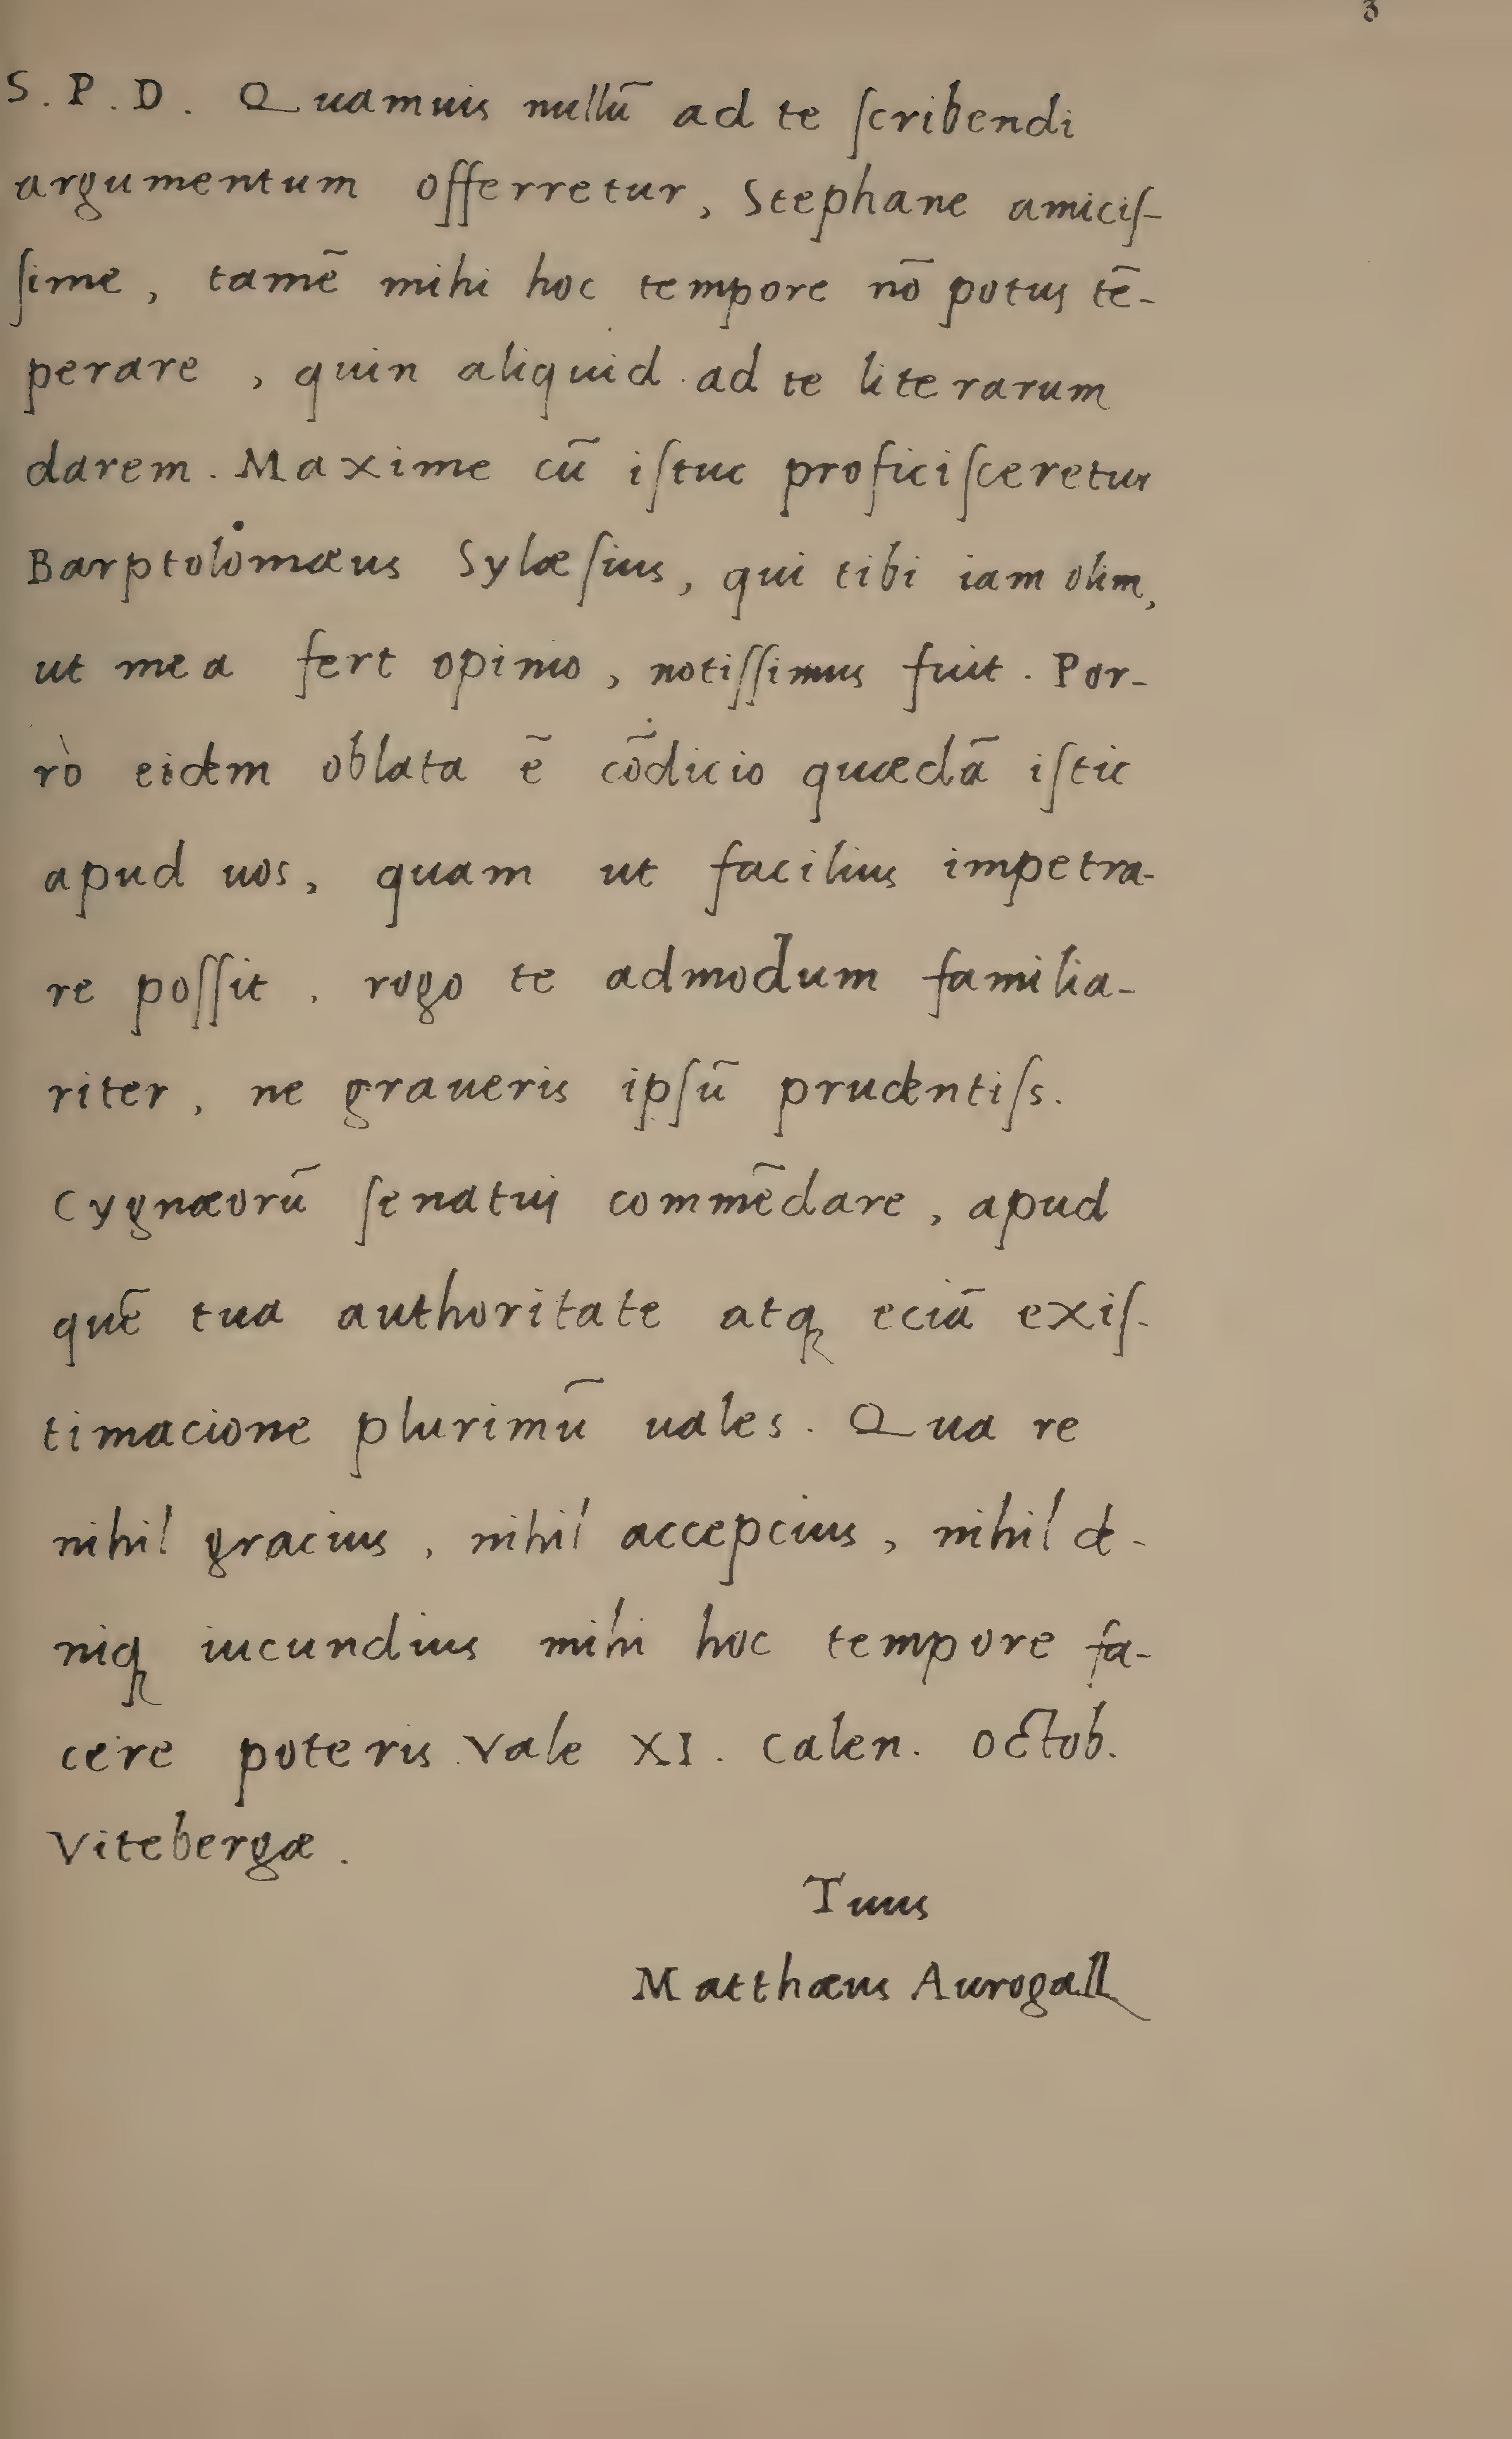 3
S. P. D. Quamuis nullū ad te ſcribendi
argumentum offerretur, Stephane amiciſ-
ſime, tamē mihi hoc tempore nō potui tē-
perare, quin aliquid ad te literarum
darem. Maxime cū iſtuc proficiſceretur
Barptolomæus Sylæſius, qui tibi iam olim,
ut mea fert opinio, notiſſimus fuit. Por-
rò eidem oblata ē cōdicio quædā iſtic
apud uos, quam ut facilius impetra-
re poſſit, rogo te admodum familia-
riter, ne graueris ipſū prudentiſs.
Cygnæorū ſenatui commēdare, apud
quē tua authoritate atqꝫ eciā exiſ-
timacione plurimū uales. Qua re
nihil gracius, nihil accepcius, nihil de-
niqꝫ iucundius mihi hoc tempore fa-
cere poteris. Vale XI. Calen. Octob.
Vitebergæ.
Tuus
Matthæus Aurogall